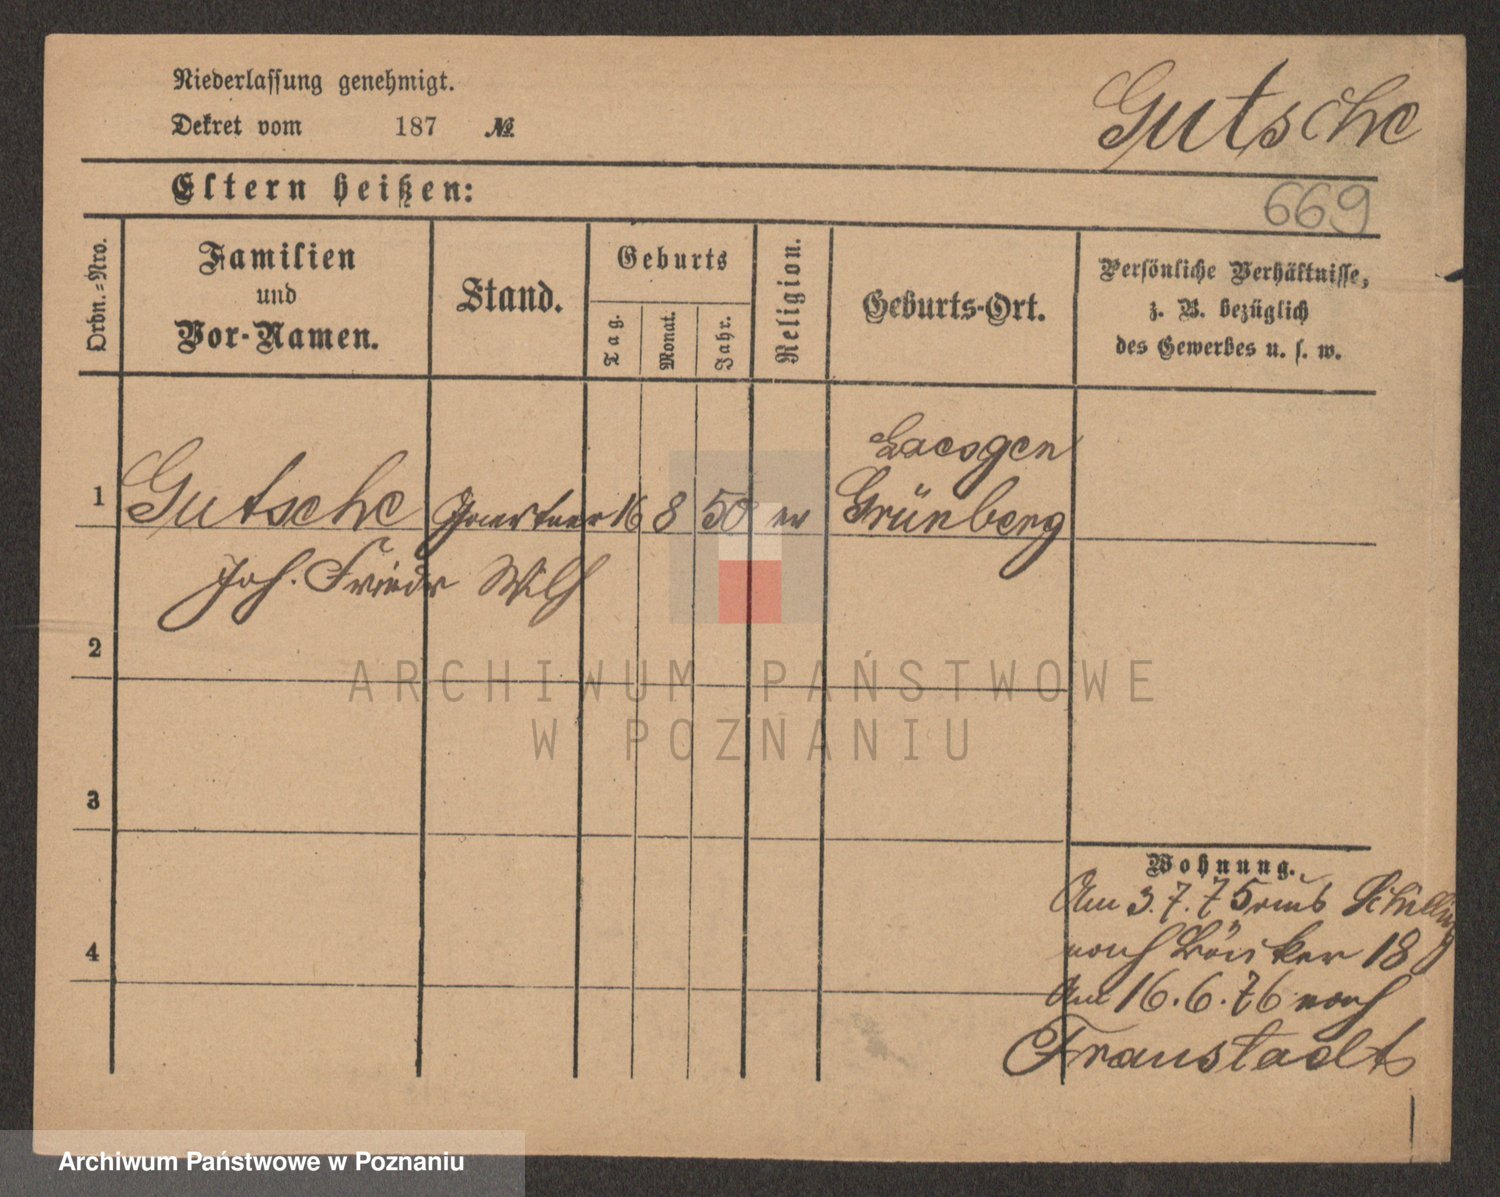 Niederlassung genehmigt.
Dekret vom 187 №
Gutsche
669
Eltern heißen:
Ordn.=Nro.
Familien
und
Vor-Namen.
Stand.
Geburts
Tag.
Monat.
Jahr.
Religion.
Geburts-Ort.
Persönliche Verhältnisse,
z. B. bezüglich
des Gewerbes u. s. w.
1 Gutsche 16 8 50 ev
Grünberg
Joh. Friedr Wilh
2
3
4
Wohnung.
Am 3.7.75 aus
nach 18
Am 16.6.76 nach
Fraustadt
ARCHIWUM PAŃSTWOWE
W POZNANIU
Archiwum Państwowe w Poznaniu